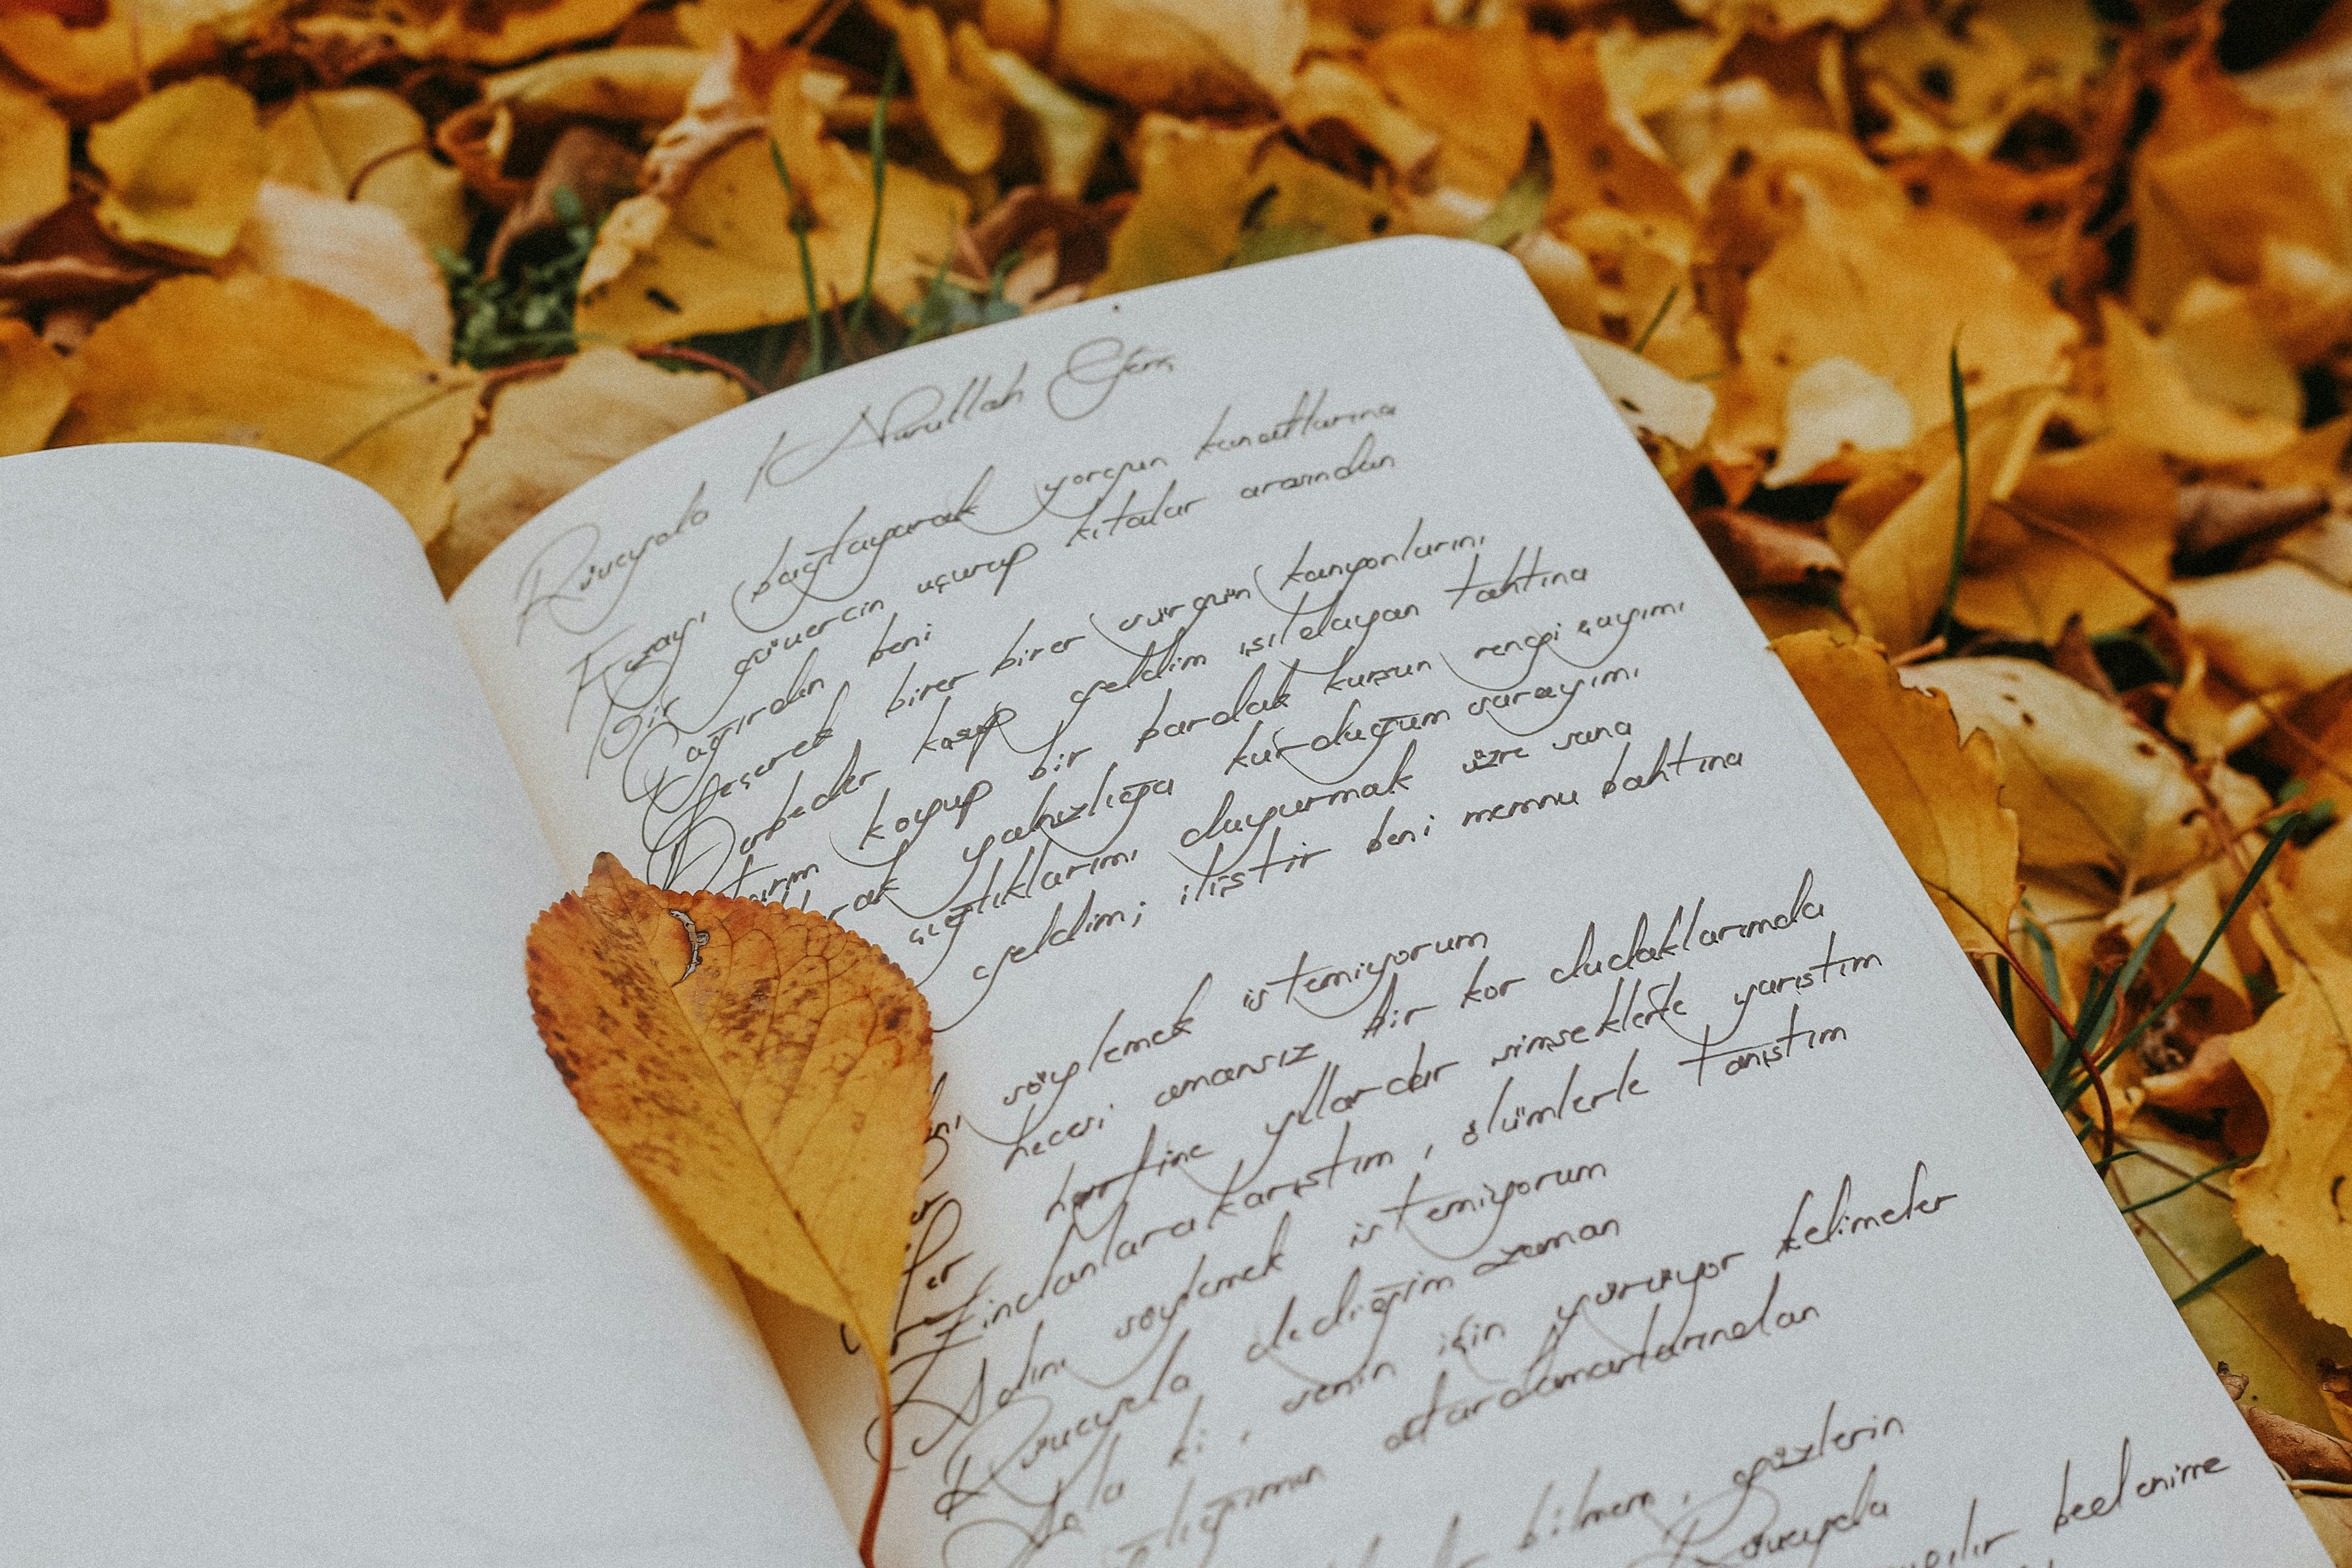 Rüveyda / Nurullah Genç
Kurayı bağlayarak yorgun kanatlarına
Bir güvercin uçurup kıtalar arasından
Çağırdan beni
Geçerek birer birer sürgün kanyonlarını
Derbeder koşup geldim ışıldayan tahtına
koyup bir bardak kurşun rengi çayımı
yalnızlığa kurduğum sarayımı
çığlıklarımı duyurmak üzre sana
geldim; iliştir beni memnu bahtına
söylemek istemiyorum
hecesi amansız bir kor dudaklarımda
harfine yıllardır şimşeklerle yarıştım
Zindanlara karıştım, ölümlerle tanıştım
Adını söylemek istemiyorum
Rüveyda dediğim zaman
Anla ki, senin için yürüyor kelimeler
atardamarlarından
bilmem, gözlerin
Rüveyda
bedenime